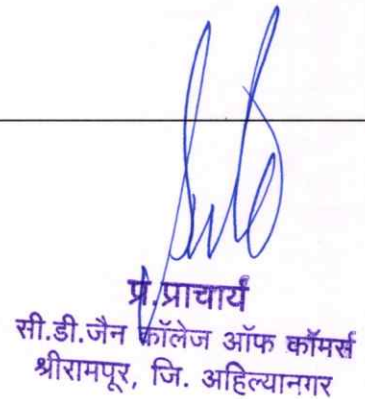 प्र.प्राचार्य
सी.डी.जैन कॉलेज ऑफ कॉमर्स
श्रीरामपूर, जि. अहिल्यानगर